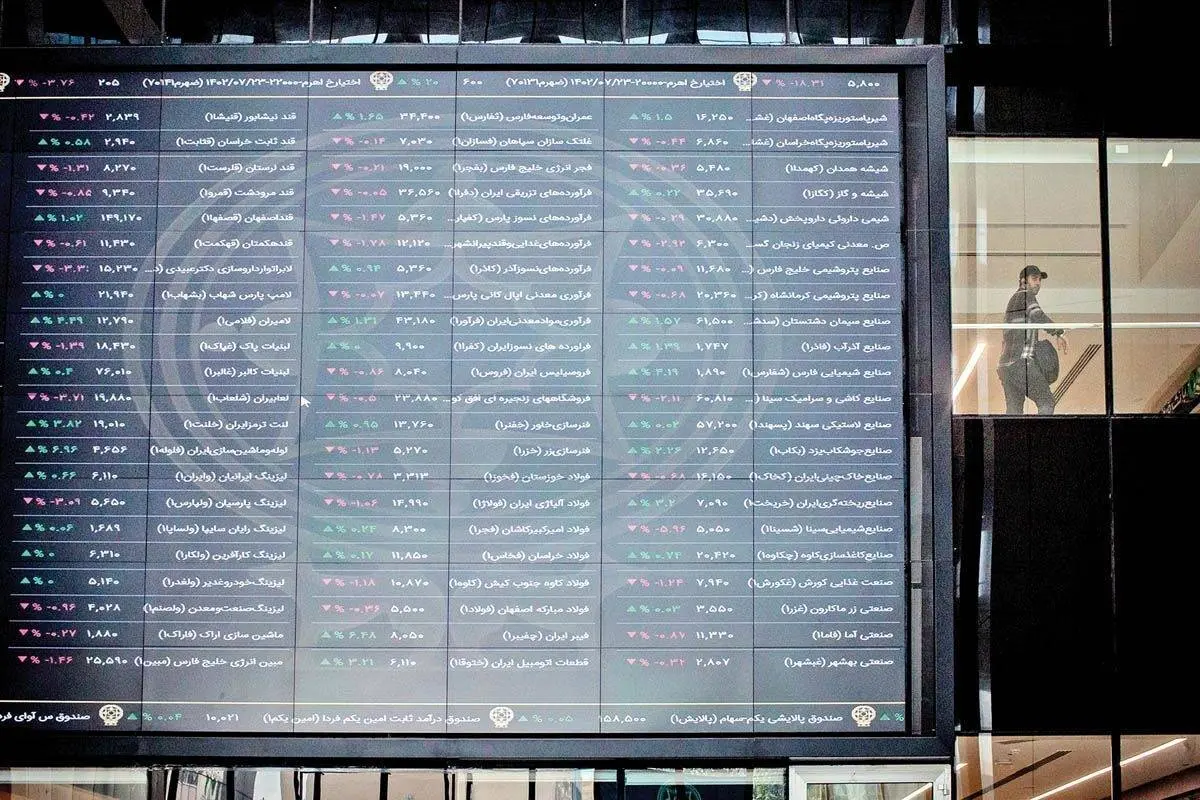 ۵,۸۰۰ ▼ % -۱۸.۳۱ اختیارخ اهرم-۲۰۰۰۰-۱۴۰۲/۰۷/۲۳ (ضهرم۷۰۱۳) ۶۰۰ ▲ % ۲۰ اختیارخ اهرم-۲۲۰۰۰-۱۴۰۲/۰۷/۲۳ (ضهرم۷۰۱۴) ۲۰۵ ▼ % -۳.۷۶
شیرپاستوریزه‌پگاه‌اصفهان (غش... ۱۶,۲۵۰ ▲ % ۱.۵ عمران‌وتوسعه‌فارس (ثفارس۱) ۳۴,۴۰۰ ▲ % ۱.۶۵ قند نیشابور (قنیشا۱) ۲,۸۳۹ ▼ % -۰.۴۲
شیرپاستوریزه‌پگاه‌خراسان (غشا... ۶,۸۶۰ ▼ % -۰.۴۴ غلتک سازان سپاهان (فسازان۱) ۷,۰۳۰ ▼ % -۰.۱۴ قند ثابت خراسان (قثابت۱) ۲,۹۴۰ ▲ % ۰.۵۸
شیشه همدان (کهمدا۱) ۵,۴۸۰ ▼ % -۰.۳۶ فجر انرژی خلیج فارس (بفجر۱) ۱۹,۰۰۰ ▼ % -۰.۲۱ قند لرستان (قلرست۱) ۸,۲۷۰ ▼ % -۱.۳۱
شیشه و گاز (کگاز۱) ۳۵,۶۹۰ ▲ % ۰.۲۲ فرآورده‌های تزریقی ایران (دفرا۱) ۳۶,۵۶۰ ▼ % -۰.۰۵ قند مرودشت (قمرو۱) ۹,۳۴۰ ▼ % -۰.۸۵
شیمی داروئی داروپخش (دشی... ۳۰,۸۸۰ ▼ % -۰.۲۹ فرآورده‌های نسوز پارس (کفپار... ۵,۳۶۰ ▼ % -۱.۴۷ قنداصفهان (قصفها۱) ۱۴۹,۱۷۰ ▲ % ۱.۰۲
ص. معدنی کیمیای زنجان گس... ۶,۳۰۰ ▼ % -۲.۹۲ فرآورده‌های‌غذایی‌وقندپیرانشهر... ۱۲,۱۲۰ ▼ % -۱.۷۸ قندهکمتان (قهکمت۱) ۱۱,۴۳۰ ▼ % -۰.۶۱
صنایع پتروشیمی خلیج فارس (... ۱۱,۶۸۰ ▼ % -۰.۰۹ فرآورده‌های‌نسوزآذر (کاذر۱) ۵,۳۶۰ ▲ % ۰.۹۴ لابراتوارداروسازی دکترعبیدی (د... ۱۵,۲۳۰
صنایع پتروشیمی کرمانشاه (کر... ۲۰,۳۶۰ ▼ % -۰.۶۸ فرآوری معدنی اپال کانی پارس... ۱۳,۴۴۰ ▼ % -۰.۰۷ لامپ پارس شهاب (بشهاب۱) ۲۱,۹۴۰ ▲ % ۰
صنایع سیمان دشتستان (سدش... ۶۱,۵۰۰ ▲ % ۱.۵۷ فرآوری‌موادمعدنی‌ایران (فرآور۱) ۴۳,۱۸۰ ▲ % ۱.۳۱ لامیران (فلامی۱) ۱۲,۷۹۰ ▲ % ۴.۴۹
صنایع آذرآب (فاذر۱) ۱,۷۴۷ ▲ % ۱.۳۹ فراورده های نسوزایران (کفرا۱) ۹,۹۰۰ ▲ % ۰ لبنیات پاک (غپاک۱) ۱۸,۴۳۰ ▼ % -۱.۳۹
صنایع شیمیایی فارس (شفارس۱) ۱,۸۹۰ ▲ % ۴.۱۹ فروسیلیس ایران (فروس۱) ۸,۰۴۰ ▼ % -۰.۸۶ لبنیات کالبر (غالبر۱) ۷۶,۰۱۰ ▲ % ۰.۴
صنایع کاشی و سرامیک سینا (... ۶۰,۸۱۰ ▼ % -۲.۱۱ فروشگاههای زنجیره ای افق کو... ۲۳,۸۸۰ ▼ % -۰.۵ لعابیران (شلعاب۱) ۱۹,۸۸۰ ▼ % -۳.۷۱
صنایع لاستیکی سهند (پسهند۱) ۵۷,۲۰۰ ▲ % ۰.۰۲ فنرسازی‌خاور (خفنر۱) ۱۳,۷۶۰ ▲ % ۰.۹۵ لنت ترمزایران (خلنت۱) ۱۹,۰۱۰ ▲ % ۳.۸۲
صنایع‌جوشکاب‌یزد (بکاب۱) ۱۲,۶۵۰ ▲ % ۲.۲۶ فنرسازی‌زر (خزر۱) ۵,۲۷۰ ▼ % -۱.۱۳ لوله‌وماشین‌سازی‌ایران (فلوله۱) ۴,۶۵۶ ▲ % ۶.۹۶
صنایع‌خاک‌چینی‌ایران (کخاک۱) ۱۶,۱۵۰ ▼ % -۰.۶۸ فولاد خوزستان (فخوز۱) ۳,۳۱۳ ▼ % -۰.۷۸ لیزینگ ایرانیان (وایران۱) ۶,۱۱۰ ▲ % ۰.۶۶
صنایع‌ریخته‌گری‌ایران (خریخت۱) ۷,۰۹۰ ▲ % ۳.۲ فولاد آلیاژی ایران (فولاژ۱) ۱۴,۹۹۰ ▼ % -۱.۰۶ لیزینگ پارسیان (ولپارس۱) ۵,۶۵۰ ▼ % -۳.۰۹
صنایع‌شیمیایی‌سینا (شسینا۱) ۵,۰۵۰ ▼ % -۵.۹۶ فولاد امیرکبیرکاشان (فجر۱) ۸,۳۰۰ ▲ % ۰.۲۴ لیزینگ رایان سایپا (ولساپا۱) ۱,۶۸۹ ▲ % ۰.۰۶
صنایع‌کاغذسازی‌کاوه (چکاوه۱) ۲۰,۴۲۰ ▲ % ۰.۷۴ فولاد خراسان (فخاس۱) ۱۱,۸۵۰ ▲ % ۰.۱۷ لیزینگ کارآفرین (ولکار۱) ۶,۳۱۰ ▲ % ۰
صنعت غذایی کورش (غکورش۱) ۷,۹۴۰ ▼ % -۱.۲۴ فولاد کاوه جنوب کیش (کاوه۱) ۱۰,۸۷۰ ▼ % -۱.۱۸ لیزینگ‌خودروغدیر (ولغدر۱) ۵,۱۴۰ ▲ % ۰
صنعتی زر ماکارون (غزر۱) ۳,۵۵۰ ▲ % ۰.۰۳ فولاد مبارکه اصفهان (فولاد۱) ۵,۵۰۰ ▼ % -۰.۳۶ لیزینگ‌صنعت‌ومعدن (ولصنم۱) ۴,۰۲۸ ▼ % -۰.۹۶
صنعتی آما (فاما۱) ۱۱,۳۳۰ ▼ % -۰.۸۷ فیبر ایران (چفیبر۱) ۸,۰۵۰ ▲ % ۶.۴۸ ماشین سازی اراک (فاراک۱) ۱,۸۸۰ ▼ % -۰.۲۷
صنعتی بهشهر (غبشهر۱) ۲,۸۰۷ ▼ % -۰.۳۲ قطعات اتومبیل ایران (ختوقا۱) ۶,۱۱۰ ▲ % ۳.۲۱ مبین انرژی خلیج فارس (مبین۱) ۲۵,۵۹۰ ▼ % -۱.۴۶
▲ % صندوق پالایشی یکم-سهام (پالایش۱) ۱۵۸,۵۰۰ ▲ % ۰.۰۵ صندوق درآمد ثابت امین یکم فردا (امین یکم۱) ۱۰,۰۲۱ ▲ % ۰.۰۴ صندوق س آوای فر